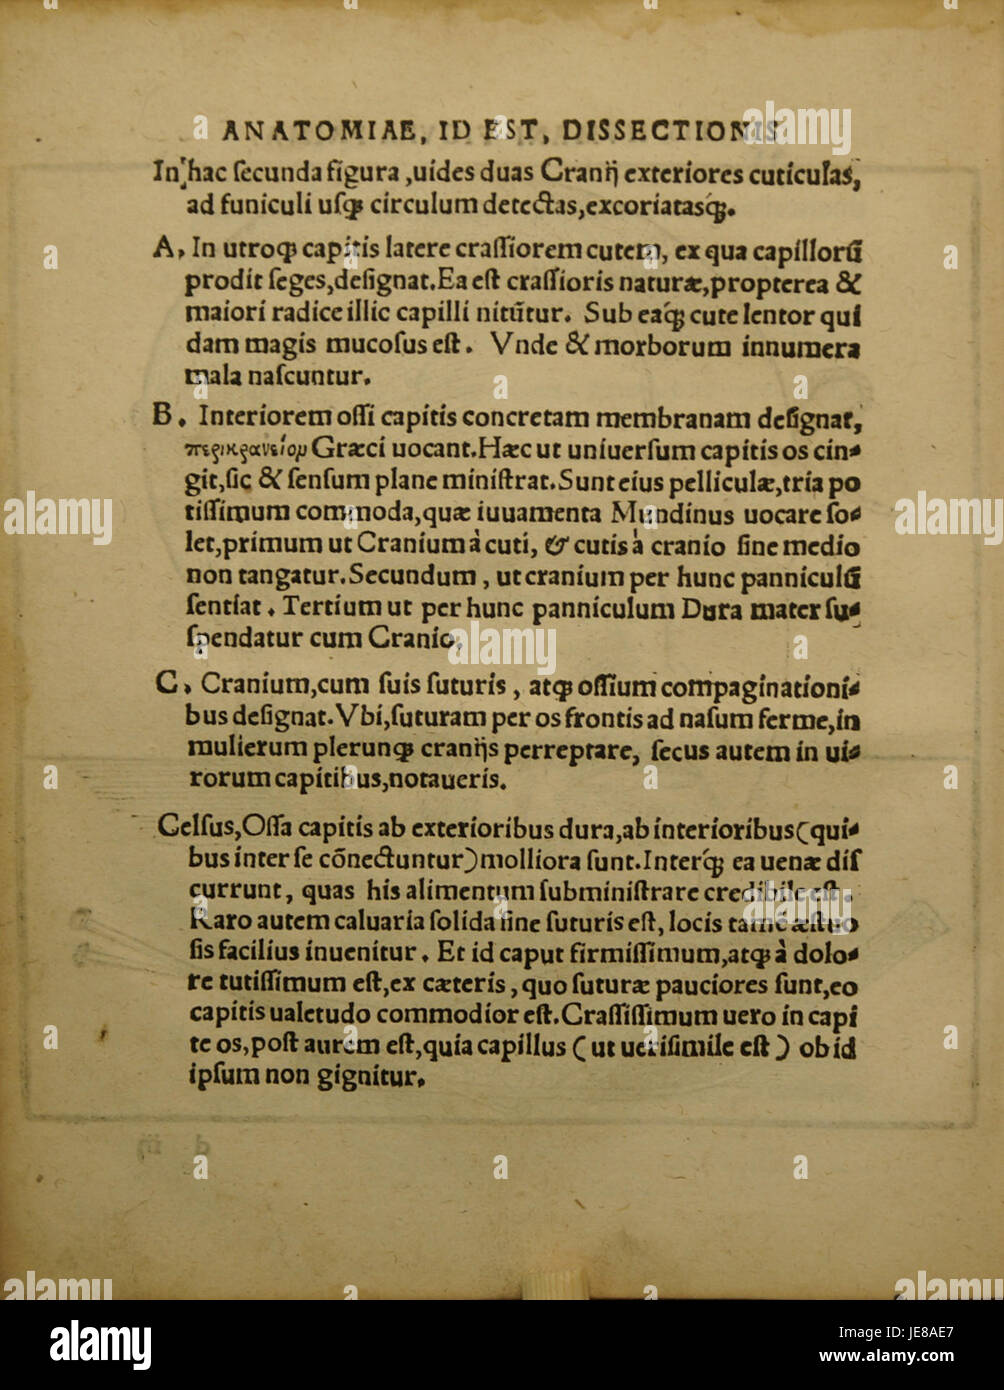 ANATOMIAE, ID EST, DISSECTIONIS
In hac ſecunda figura ,uides duas Cranĳ exteriores cuticulas,
ad funiculi uſqꝫ circulum detectas,excoriatasqꝫ.
A, In utroqꝫ capitis latere craſſiorem cutem, ex qua capillorū
prodit ſeges,deſignat.Ea eſt craſſioris naturæ,propterea &
maiori radice illic capilli nitūtur. Sub eaqꝫ cute lentor qui
dam magis mucoſus eſt. Vnde & morborum innumera
mala naſcuntur.
B. Interiorem oſſi capitis concretam membranam deſignat,
περικρανείομ Græci uocant.Hæc ut uniuerſum capitis os cin-
git,ſic & ſenſum plane miniſtrat.Sunt eius pelliculæ,tria po
tiſſimum commoda,quæ iuuamenta Mundinus uocare ſo-
let,primum ut Cranium à cuti, & cutis à cranio ſine medio
non tangatur.Secundum, ut cranium per hunc panniculū
ſentiat. Tertium ut per hunc panniculum Dura mater ſu-
ſpendatur cum Cranio.
C, Cranium,cum ſuis ſuturis, atqꝫ oſſium compaginationi-
bus deſignat.Vbi,ſuturam per os frontis ad naſum ferme,in
mulierum plerunqꝫ cranĳs perreptare, ſecus autem in ui-
rorum capitibus,notaueris.
Celſus,Oſſa capitis ab exterioribus dura,ab interioribus(qui-
bus inter ſe cōnectuntur)molliora ſunt.Interqꝫ ea uenæ diſ
currunt, quas his alimentum ſubminiſtrare credibile eſt.
Raro autem caluaria ſolida ſine ſuturis eſt, locis tamē æſtuo
ſis facilius inuenitur. Et id caput firmiſſimum,atqꝫ à dolo-
re tutiſſimum eſt,ex cæteris, quo ſuturæ pauciores ſunt,eo
capitis ualetudo commodior eſt.Craſſiſſimum uero in capi
te os,poſt aurem eſt,quia capillus (ut ueriſimile eſt) ob id
ipſum non gignitur.
alamy
alamy
Image ID: JE8AE7
www.alamy.com